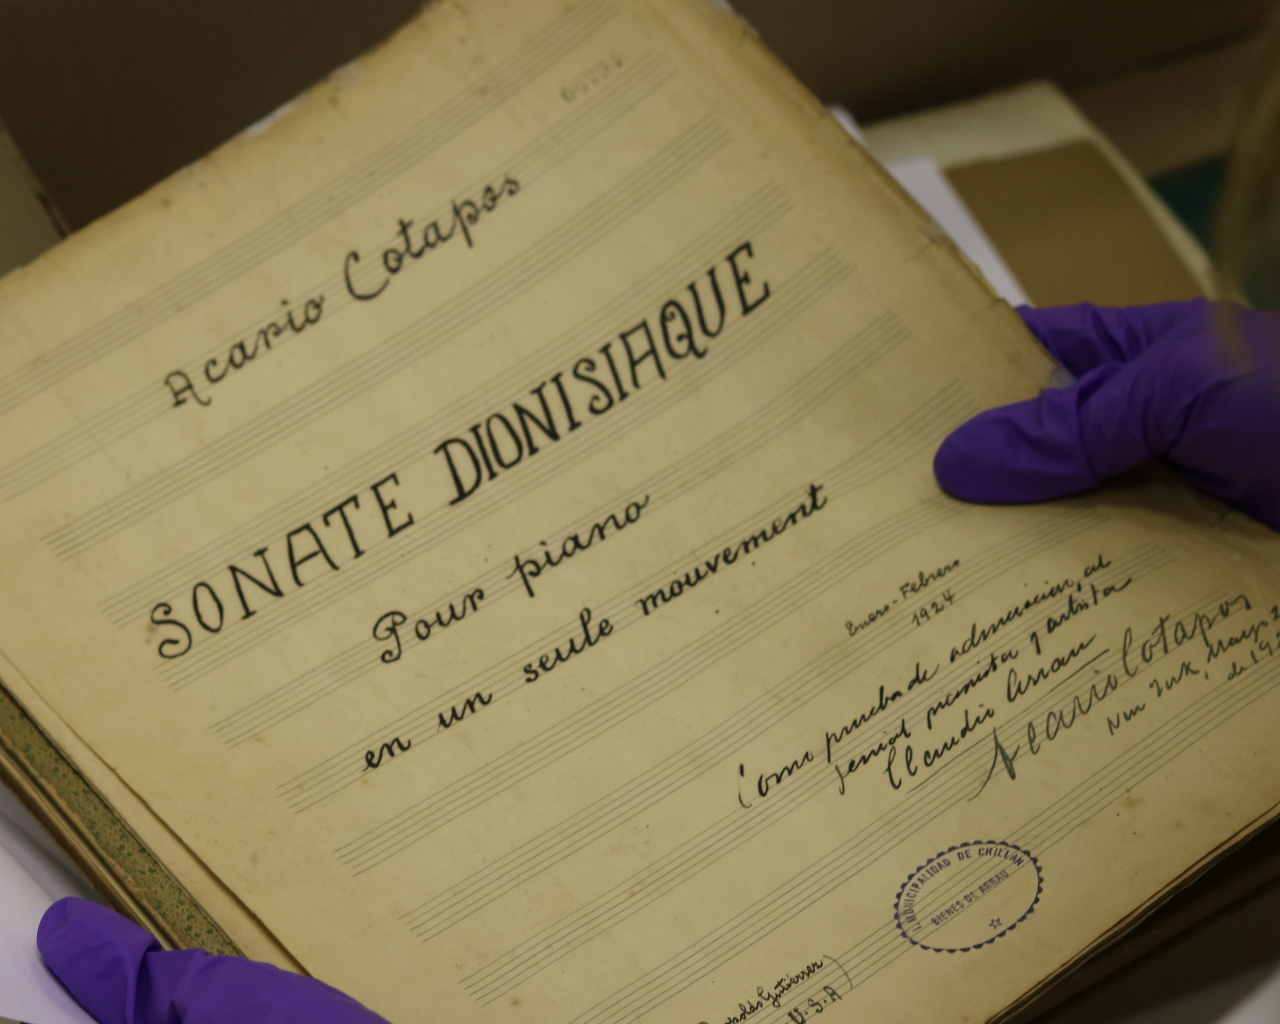 Acario Cotapos
SONATE DIONISIAQUE
Pour piano
en un seule mouvement
Enero-Febrero
1924
Como prueba de admiración, al
jenial pianista y artista
Claudio Arrau
Acario Cotapos
New York,
de 19
I. MUNICIPALIDAD DE CHILLAN
BIENES DE ARRAU
Gutiérrez
U.S.A